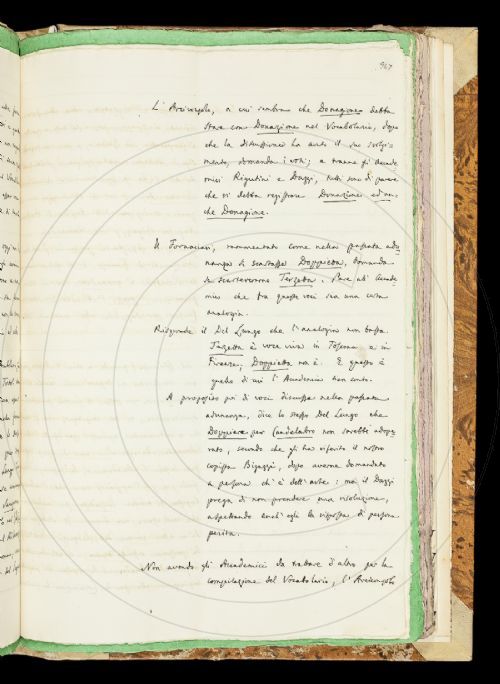 967
L'Arciconsolo, a cui sembra che Donagione debba
stare con Donazione nel Vocabolario, dopo
che la discussione ha avuto il suo svolgi-
mento, domanda i voti; e tranne gli Accade-
mici Rigutini e Dazzi, tutti sono di parere
che si debba registrare Donazione ed an-
che Donagione.
Il Fornaciari, rammentato come nella passata adu-
nanza si scartasse Doppietta, domanda
se scarteremo Terzetta. Pare all'Accade-
mico che tra queste voci sia una certa
analogia.
Risponde il Del Lungo che l'analogia non basta.
Terzetta è voce viva in Toscana e in
Firenze, Doppietta non è. E questo è
quello di cui l'Accademia tien conto.
A proposito poi di voci discusse nella passata
adunanza, dice lo stesso Del Lungo che
Doppiere per Candelabro non sarebbe adope-
rato, secondo che gli ha riferito il nostro
copista Bigazzi, dopo averne domandato
a persona ch'è dell'arte: ma il Dazzi
prega di non prendere una risoluzione,
aspettando anch'egli la risposta di persona
perita.
Non avendo gli Accademici da trattare d'altro per la
compilazione del Vocabolario, l'Arciconsolo